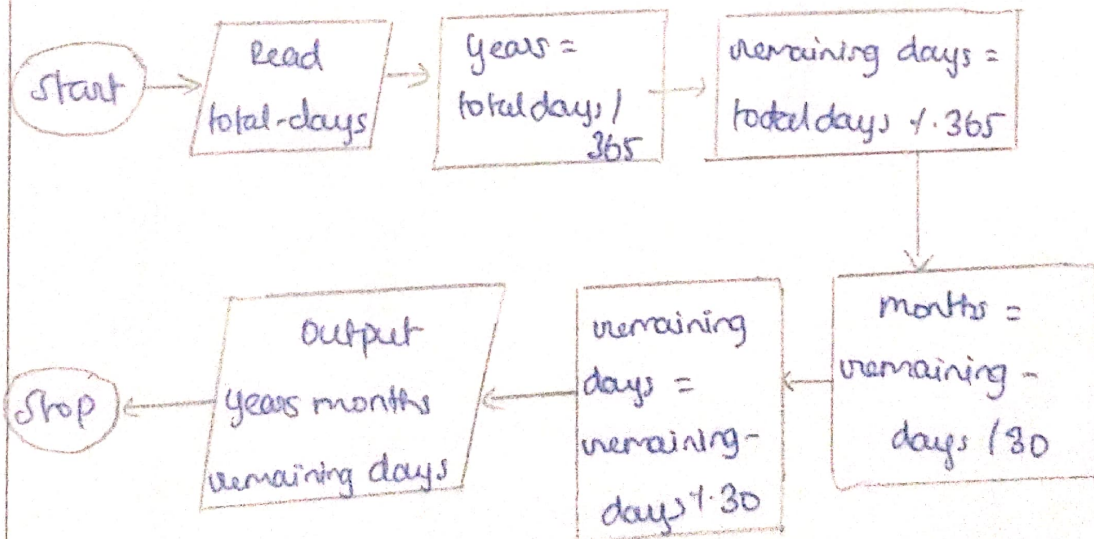 Start
Read
total-days
years =
totaldays /
365
remaining days =
totaldays %. 365
months =
remaining -
days / 30
remaining
days =
remaining-
days %. 30
Output
years months
remaining days
Stop